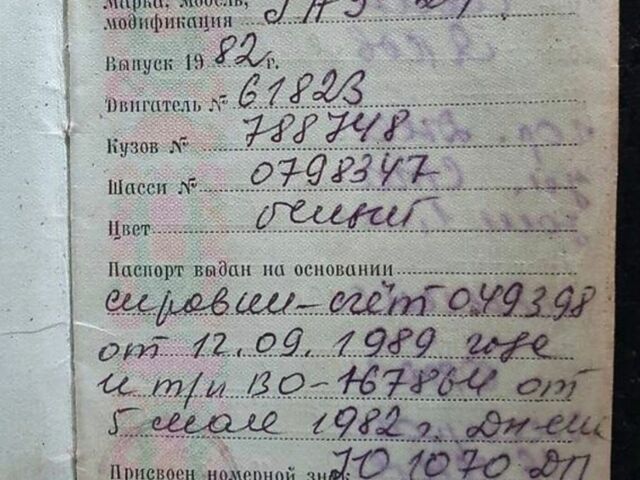 Марка, модель,
модификация ГАЗ 24
Выпуск 19 82 г.
Двигатель № 61823
Кузов № 788748
Шасси № 0798347
Цвет белый
Паспорт выдан на основании
справки-счёт 049398
от 12.09.1989 года
и т/п ВО-767864 от
5 мая 1982 г.
Присвоен номерной знак Ю 1070 ДП